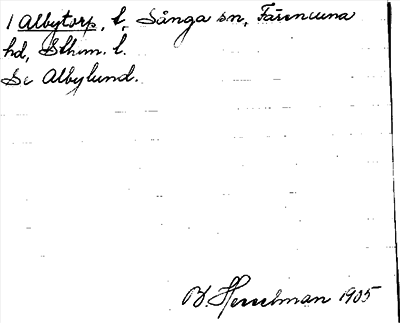 1 Albytorp, l, Sånga sn, Färentuna
hd, Sthm. l.
Se Albylund.
B. Hesselman 1905